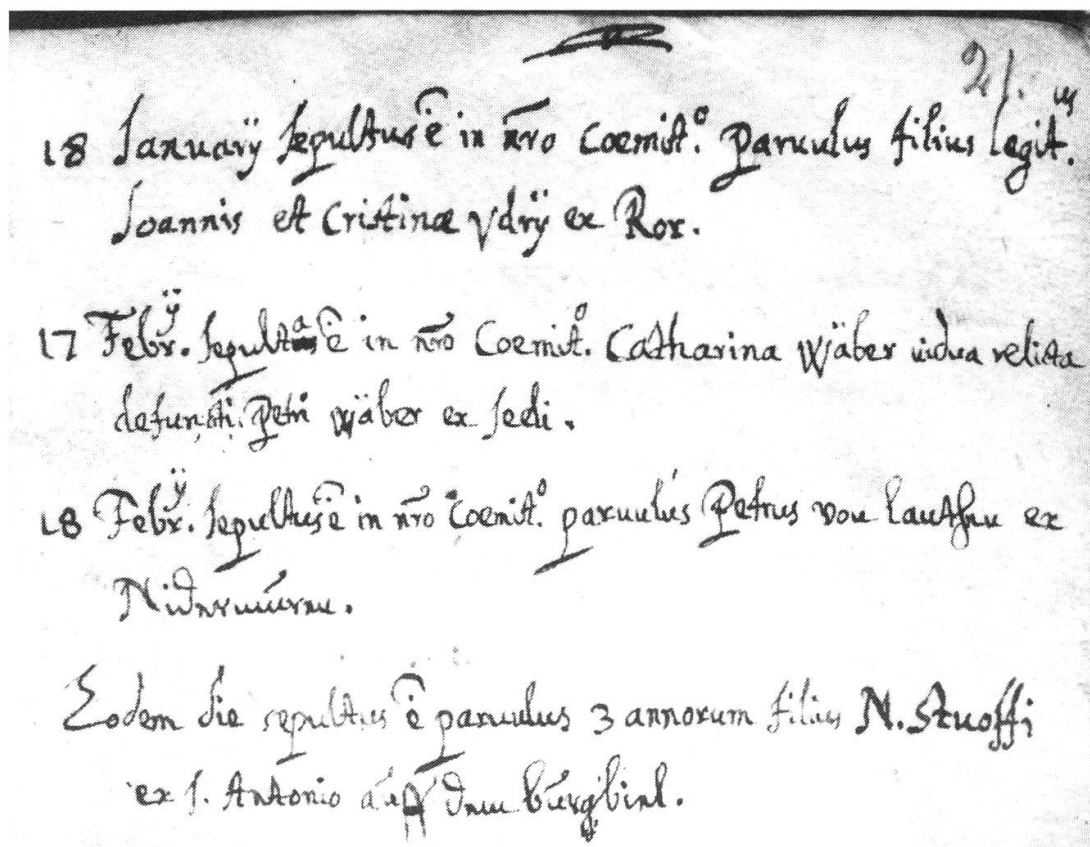 21.
18 Januarÿ sepultus ē in n̄ro Coemit.º parvulus filius legit.us
Joannis et Cristinæ Vdrÿ ex Ror.
17 Febr.ÿ sepulta ē in n̄ro Coemit.º Catharina Wäber vidua relicta
defuncti Petri Wäber ex Sedi.
18 Febr.ÿ sepultus ē in n̄ro Coemit.º parvulus Petrus von Lauthen ex
Nidermuren.
Eodem die sepultus ē parvulus 3 annorum filius N. Stuoffi
ex S. Antonio auff dem burgbiel.